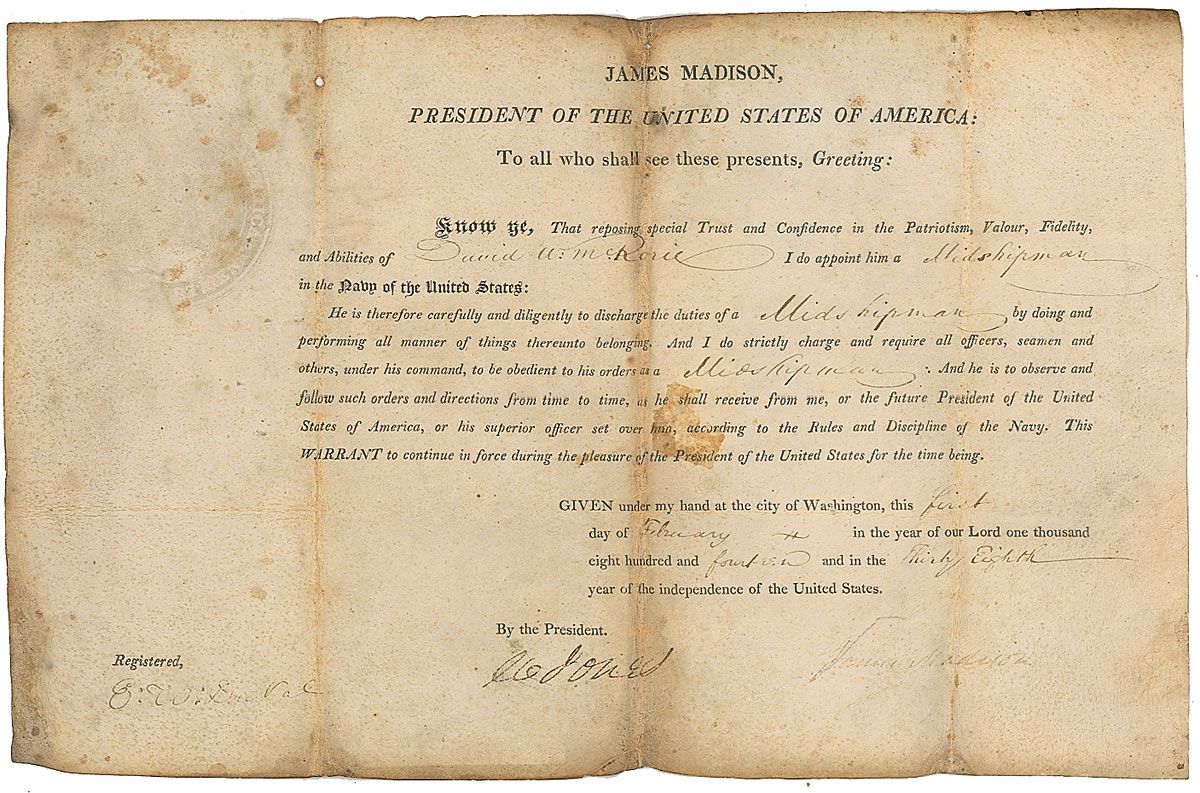 JAMES MADISON,
PRESIDENT OF THE UNITED STATES OF AMERICA:
To all who shall see these presents, Greeting:
Know ye, That reposing special Trust and Confidence in the Patriotism, Valour, Fidelity,
and Abilities of David W. I do appoint him a Midshipman
in the Navy of the United States:
He is therefore carefully and diligently to discharge the duties of a Midshipman by doing and
performing all manner of things thereunto belonging. And I do strictly charge and require all officers, seamen and
others, under his command, to be obedient to his orders as a Midshipman : And he is to observe and
follow such orders and directions from time to time, as he shall receive from me, or the future President of the United
States of America, or his superior officer set over him, according to the Rules and Discipline of the Navy. This
WARRANT to continue in force during the pleasure of the President of the United States for the time being.
GIVEN under my hand at the city of Washington, this first
day of February in the year of our Lord one thousand
eight hundred and fourteen and in the Thirty Eighth
year of the independence of the United States.
By the President.
W Jones
James Madison
Registered,